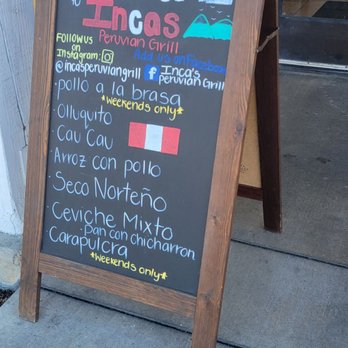 to
Incas
Peruvian Grill
FOLLOW US
on
Instagram:
Add us on Facebook
@incasperuviangrill
Inca's
Peruvian Grill
· pollo a la brasa
*weekends only*
· Olluquito
· Cau Cau
· Arroz con pollo
· Seco Norteño
· Ceviche Mixto
· pan con chicharron
· Carapulcra
*weekends only*